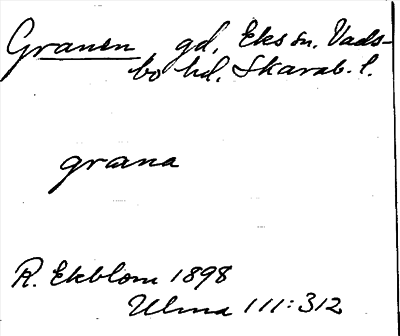 Granen gd, Eks sn. Vads-
bo hd. Skarab. l.
grana
R. Ekblom 1898
Ulma 111:312